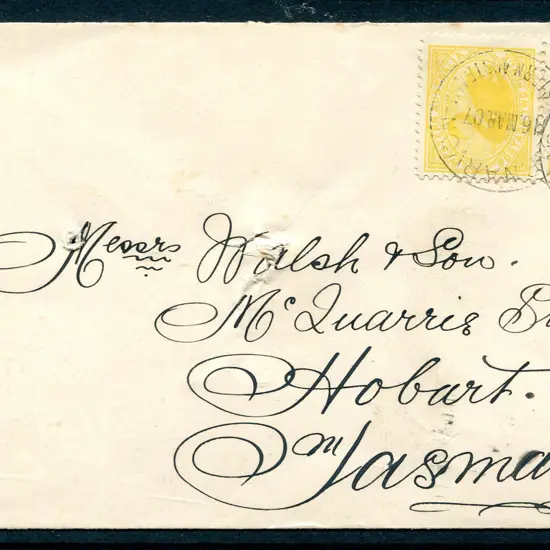 Messrs Walsh & Son.
McQuarrie
Hobart.
Tasma
16 MAR 07